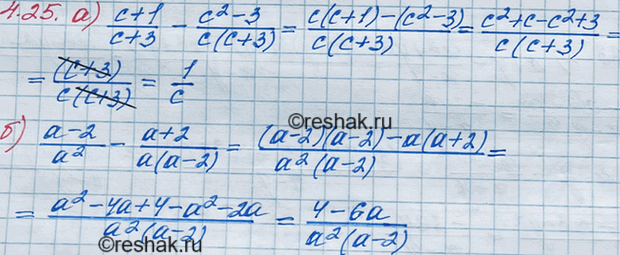 4.25. а) (c+1)/(c+3) - (c²-3)/(c(c+3)) = (c(c+1)-(c²-3))/(c(c+3)) = (c²+c-c²+3)/(c(c+3)) =
= (c+3)/(c(c+3)) = 1/c
©reshak.ru
б) (a-2)/a² - (a+2)/(a(a-2)) = ((a-2)(a-2)-a(a+2))/(a²(a-2)) =
= (a²-4a+4-a²-2a)/(a²(a-2)) = (4-6a)/(a²(a-2))
©reshak.ru